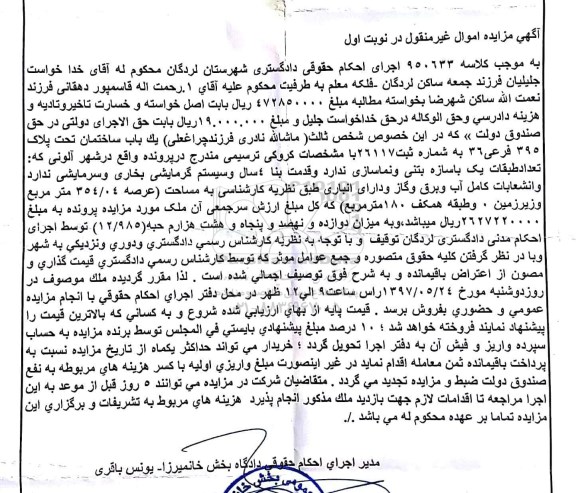 آگهي مزایده اموال غیرمنقول در نوبت اول
به موجب کلاسه ۹۵۰۶۳۳ اجرای احکام حقوقی دادگستری شهرستان لردگان محکوم له آقای خدا خواست
جلیلیان فرزند جمعه ساکن لردگان -فلکه معلم به طرفیت محکوم علیه آقاي ۱.رحمت اله قاسمپور دهقانی فرزند
نعمت الله ساکن شهرضا بخواسته مطالبه مبلغ ۴۷۲۸۵۰۰۰۰ ریال بابت اصل خواسته و خسارت تاخیروتادیه و
هزینه دادرسي وحق الوکاله درحق خداخواست جلیل و مبلغ ۱۹.۰۰۰.۰۰۰ریال بابت حق الاجرای دولتی در حق
صندوق دولت » که در این خصوص شخص ثالث( ماشالله نادری فرزندچراغعلی) یك باب ساختمان تحت پلاک
۳۹۵ فرعی۳۶ به شماره ثبت۲۶۱۱۷با مشخصات کروکی ترسیمی مندرج درپرونده واقع درشهر آلونی که:
تعدادطبقات یک باسازه بتنی ونماسازی ندارد وقدمت بنا ۴سال وسیستم گرمایشی بخاری وسرمایشی ندارد
وانشعابات کامل آب وبرق وگاز ودارای انباری طبق نظریه کارشناسی به مساحت (عرصه ۳۵۴/۰۴ متر مربع
وزیرزمین ۰ وطبقه همکف ۱۸۰مترمربع) که کل مبلغ ارزش سرجمعی آن ملک مورد مزایده پرونده به مبلغ
۲۶۲۷۲۲۰۰۰۰ریال میباشد،وبه میزان دوازده و نهصد و پنجاه و هشت هزارم حبه(۱۲/۹۸۵) توسط اجرای
احکام مدنی دادگستری لردگان توقیف و با توجه به نظریه کارشناس رسمي دادگستري ودوري ونزدیکي به شهر
وبا در نظر گرفتن کلیه حقوق متصوره و جمع عوامل موثر که توسط کارشناس رسمي دادگستري قیمت گذاري و
مصون از اعتراض باقیمانده و به شرح فوق توصیف اجمالي شده است . لذا مقرر گردیده ملك موصوف در
روزدوشنبه مورخ ۱۳۹۷/۰۵/۲۴راس ساعت۹ الی۱۲ ظهر در محل دفتر اجراي احکام حقوقي با انجام مزایده
عمومي و حضوري بفروش برسد . قیمت پایه از بهاي ارزیابي شده شروع و به کساني که بالاترین قیمت را
پیشنهاد نمایند فروخته خواهد شد ؛ ۱۰ درصد مبلغ پیشنهادي بایستي في المجلس توسط برنده مزایده به حساب
سپرده واریز و فیش آن به دفتر اجرا تحویل گردد ؛ خریدار مي تواند حداکثر یکماه از تاریخ مزایده نسبت به
پرداخت باقیمانده ثمن معامله اقدام نماید در غیر اینصورت مبلغ واریزي اولیه با کسر هزینه هاي مربوطه به نفع
صندوق دولت ضبط و مزایده تجدید مي گردد . متقاضیان شرکت در مزایده مي توانند ۵ روز قبل از موعد به این
اجرا مراجعه تا اقدامات لازم جهت بازدید ملك مذکور انجام پذیرد هزینه هاي مربوط به تشریفات و برگزاري این
مزایده تماما بر عهده محکوم له مي باشد ./.
مدیر اجراي احکام حقوقي دادگاه بخش خانمیرزا- یونس باقری